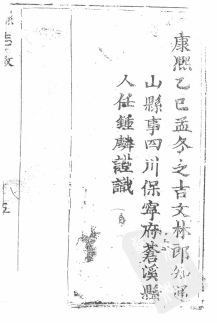 康熙乙巳孟冬之吉文林郎知
山縣事四川保寧府蒼溪縣
人任鍾麟謹識